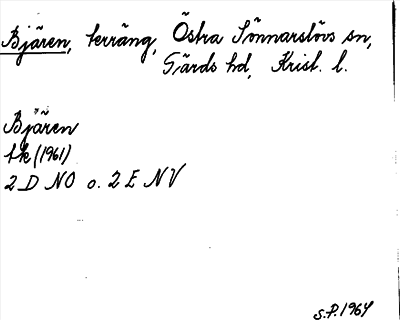 Bjären, terräng, Östra Sönnarslövs sn,
Gärds hd, Krist. l.
Bjären
t.k (1961)
2 D NO o. 2 E NV
S.P. 1964